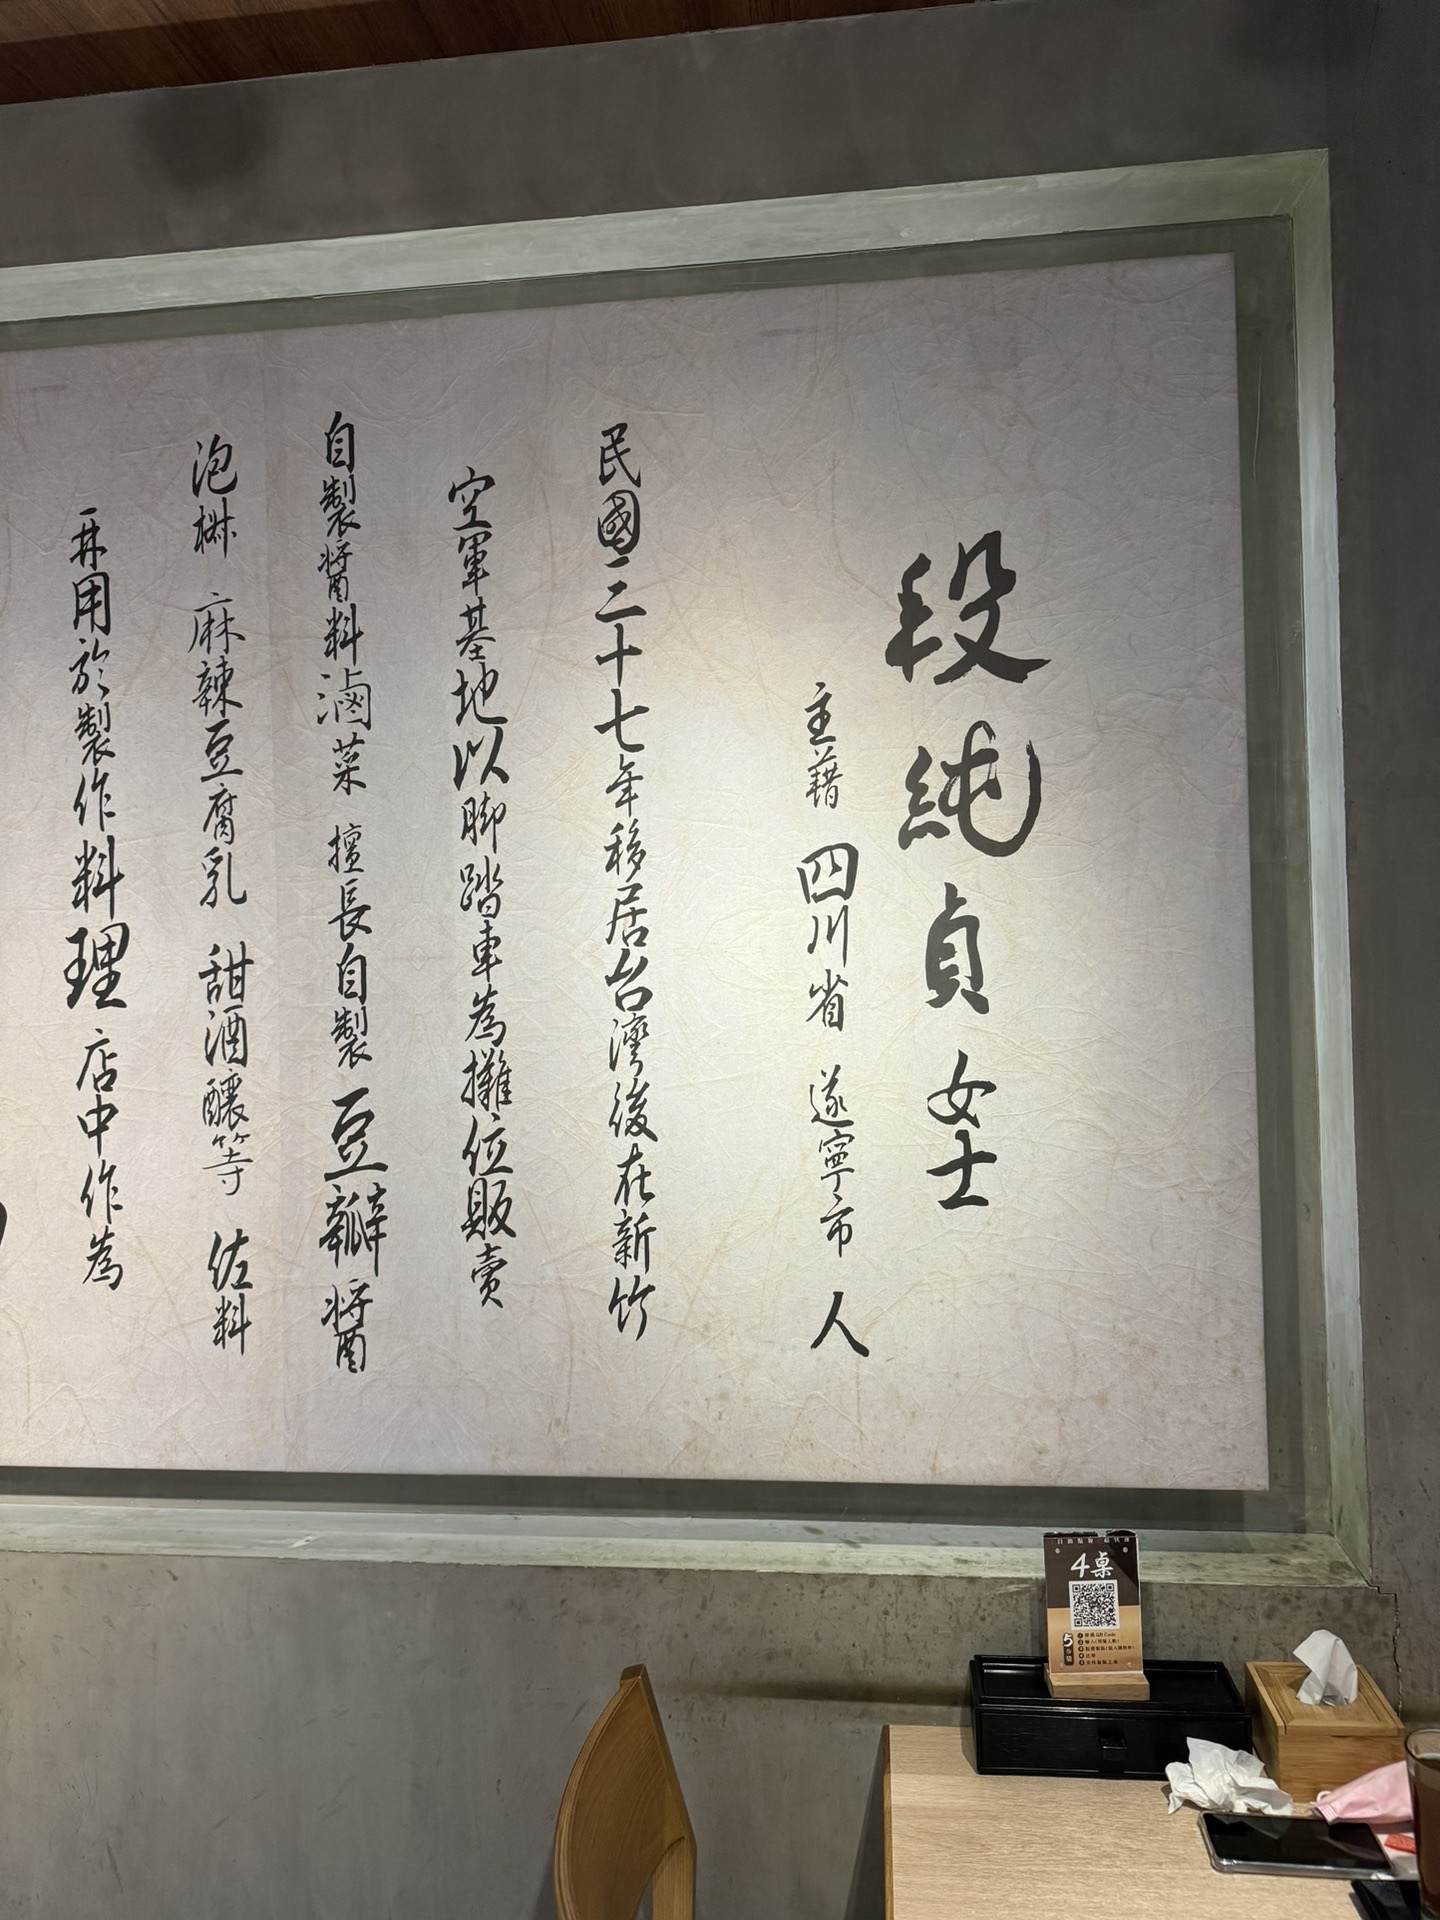 段純貞 女士
主藉 四川省 遂寧市 人
民國三十七年移居台灣後在新竹
空軍基地以脚踏車為攤位販賣
自製醬料滷菜 擅長自製豆瓣醬
泡椒 麻辣豆腐乳 甜酒釀等 佐料
再用於製作料理店中作為
4桌
5步驟